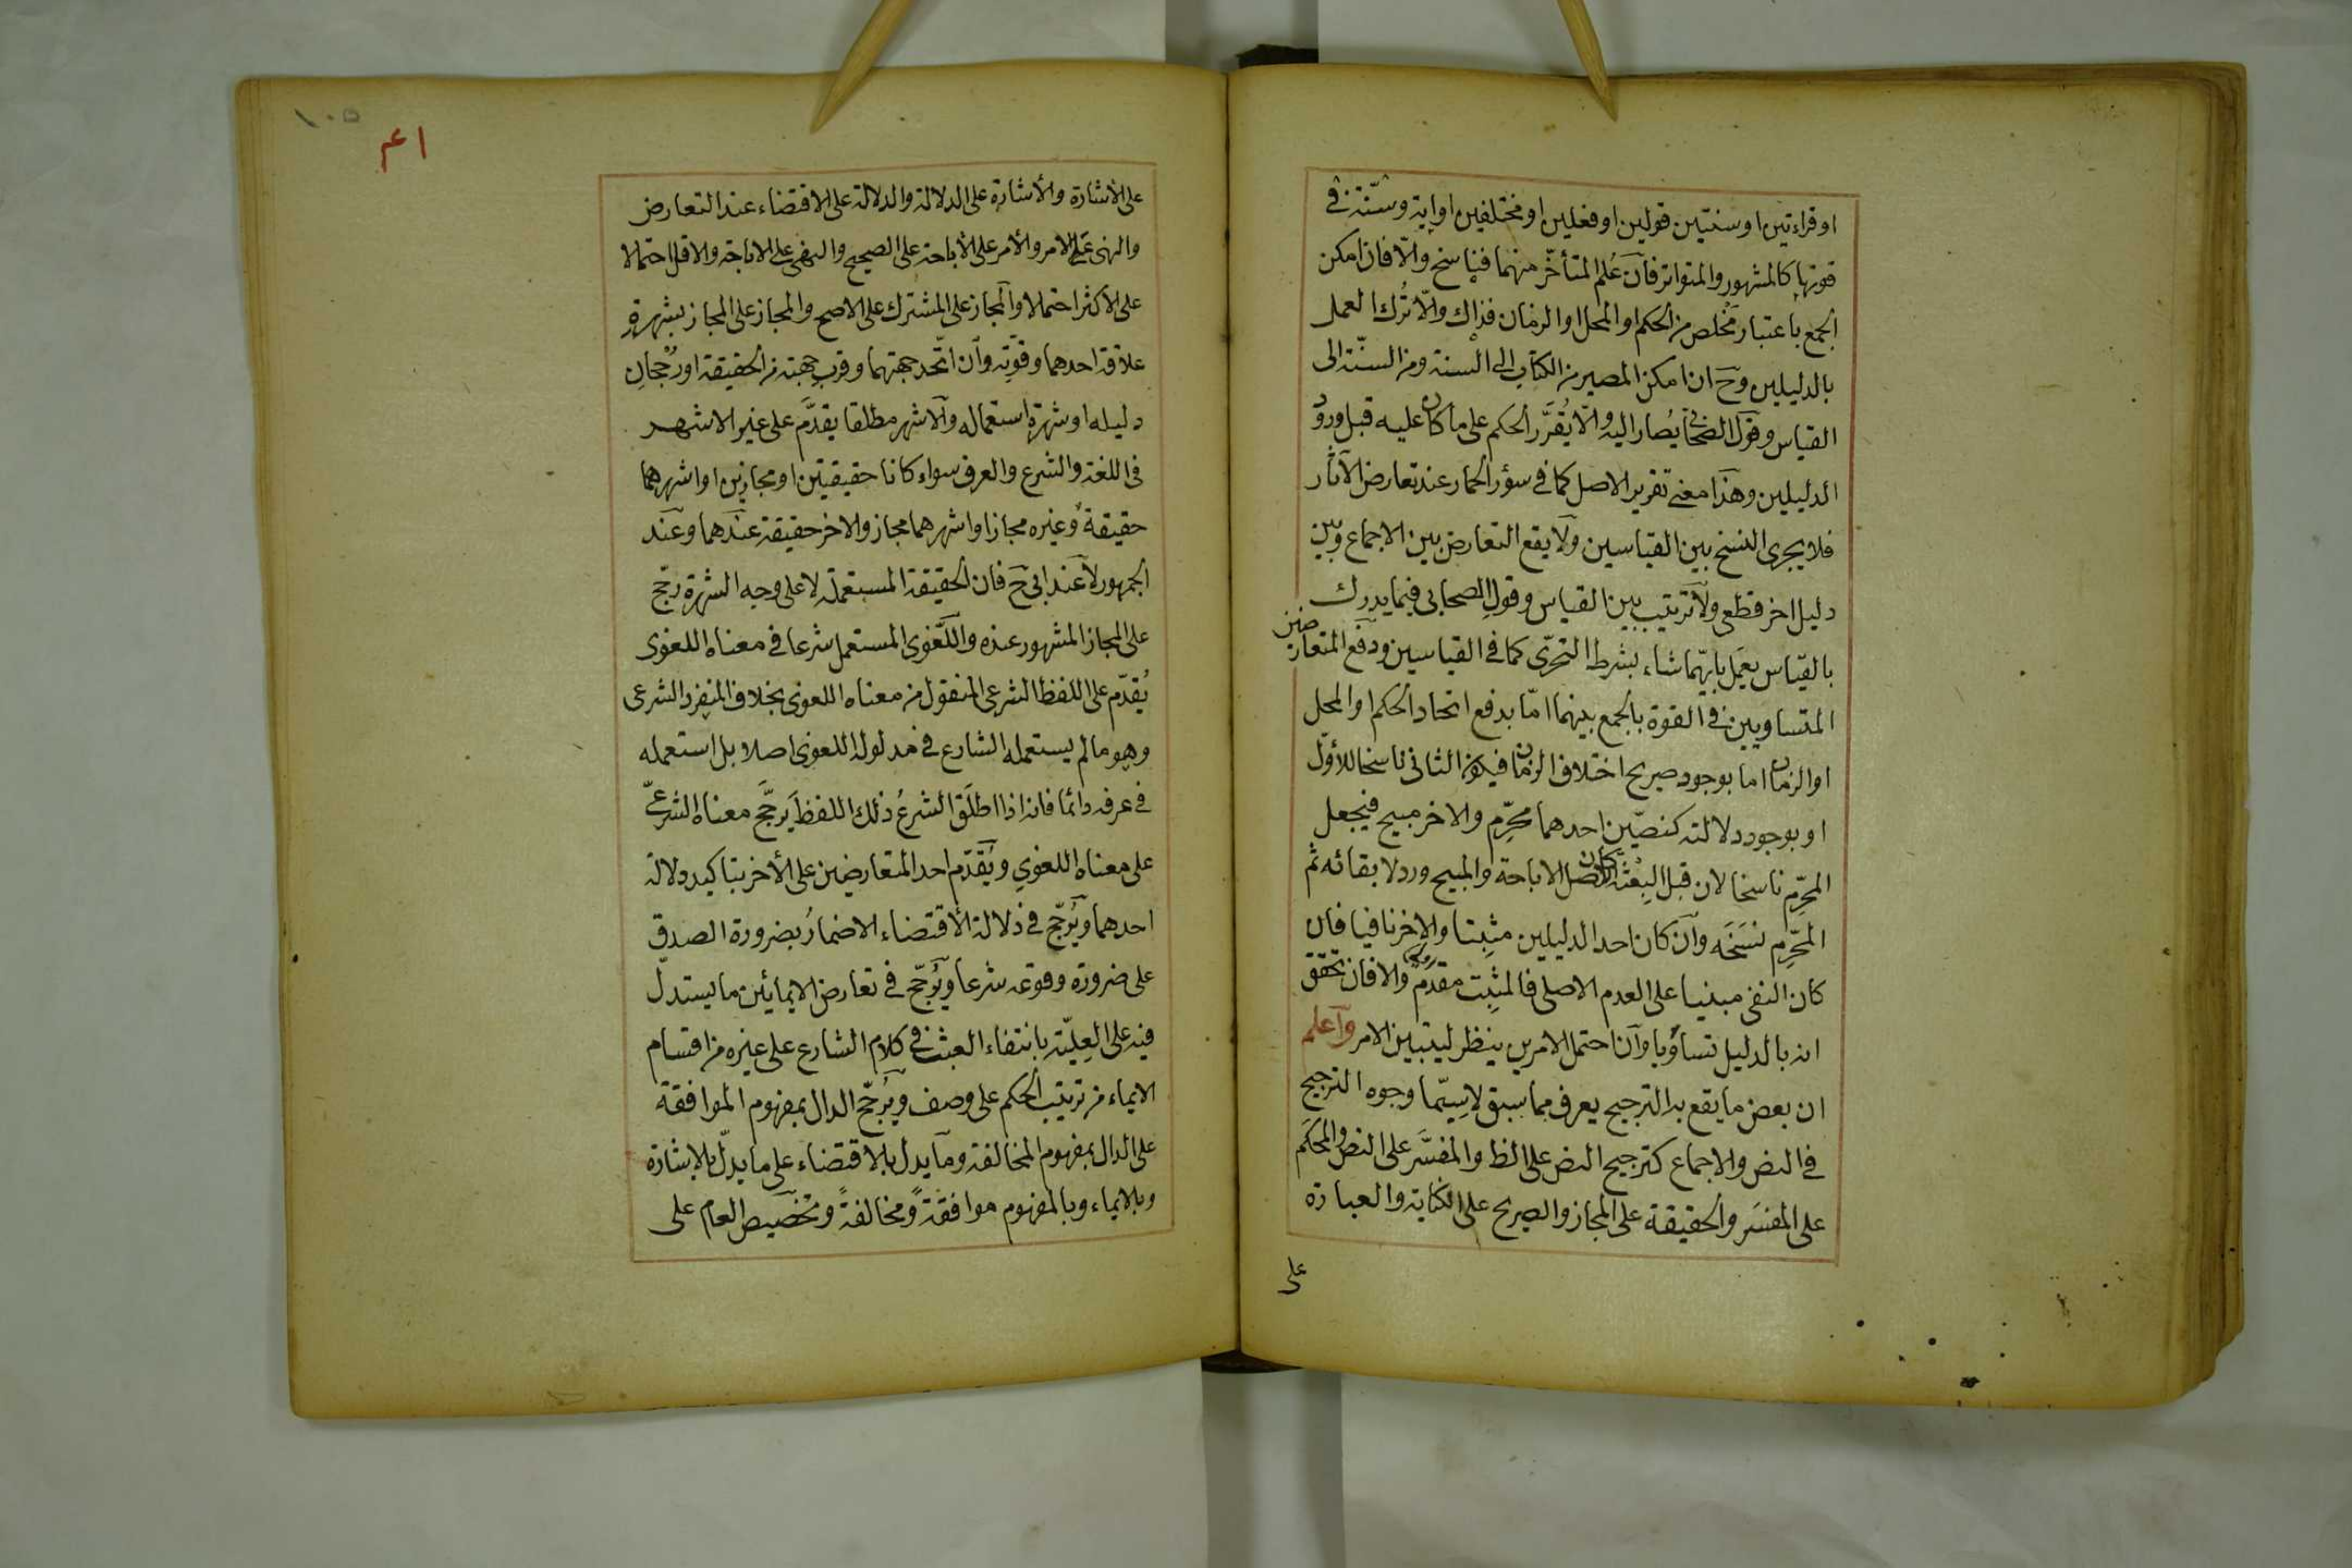 او قراءتين او سنتين قولين او فعلين او مختلفين او اية وسنّة في
قوتها كالمشهور والمتواتر فآن عُلم المتأخّر منهما فناسخ والّا فان امكن
الجمع باعتبار مَخْلص من الحكم او المحل او الزمان فذاك والّا تُرك العمل
بالدليلين وح ان امكن المصير من الكتاب الى السنة ومن السنّة الى
القياس وقول الصحابى يُصار اليه والّا يُقَرَّر الحكم على ما كان عليه قبل ورود
الدليلين وهذا معنى تقرير الاصل كما في سؤر الحمار عند تعارض الآثار
فلا يجرى النسخ بين القياسين ولا يقع التعارض بين الاجماع وبين
دليل اخر قطعى ولا ترتيب بين القياس وقول الصحابى فيما يدرك
بالقياس يعمل بايّهما شاء بشرط التحرّى كما في القياسين ودفع المتعارضين
المتساويين في القوة بالجمع بينهما امّا بدفع اتحاد الحكم او المحل
او الزمان اما بوجود صريح اختلاف الزمان فيكون الثانى ناسخا للأوّل
او بوجود دلالته كنصّين احدهما محرِّم والاخر مبيح فيجعل
المحرِّم ناسخا لان قبل البِعْثَة كان الاصل الاباحة والمبيح ورد لابقائه ثم
المحرِّم نسَخَه وآن كان احد الدليلين مثبِتا والاخر نافيا فان
كان النفى مبنيا على العدم الاصلى فالمثبِت مقدّم والا فان تحقق
انه بالدليل تساوَيا وآن احتمل الامرين ينظر ليتبين الامر وآعلم
ان بعض ما يقع به الترجيح يعرف مما سبق لاسيّما وجوه الترجيح
في النص والاجماع كترجيح النص على الظ والمفسَّر على النص والمحكَم
على المفسَر والحقيقة على المجاز والصريح على الكناية والعبارة
على
١٠٥
على الأشارة والأشارة على الدلالة والدلالة على الاقتضاء عند التعارض
والنهى على الامر والأمر على الأباحة على الصحيح والنهى على الاباجة والاقل احتمالا
على الاكثر احتمالا والمجاز على المشترك على الاصح والمجاز على المجاز بشهرةِ
علاقة احدهما وقوّتِه وآن اتّحد جهتهما وقربِ جهته من الحقيقة او رُجْحانِ
دليله او شهرةِ استعماله وآلاشهر مطلقا يقدَّم على غير الاشهر
في اللغة والشرع والعرف سواء كانا حقيقيتين او مجازين او اشهرهما
حقيقةً وغيره مجازا او اشهرهما مجاز والاخر حقيقة عندهما وعند
الجمهور لا عند ابى ح فان الحقيقة المستعملة لا على وجه الشهرة رجّح
على المجاز المشهور عنده واللّغوى المستعمل شرعا في معناه اللغوى
يُقدّم على اللفظ الشرعى المنقول من معناه اللغوى بخلاف المنفرد الشرعى
وهو مالم يستعمله الشارع في مدلوله اللغوى اصلا بل استعمله
في عرفه دائما فانه اذا اطلَق الشرعُ ذلك اللفظَ يَرجَّح معناه الشرعىّ
على معناه اللغوي ويُقَدّم احد المتعارضين على الأخر بتاكيد دلالة
احدهما ويُرجّح في دلالة الأقتضاء الاضمارُ بضرورة الصدق
على ضرورة وقوعه شرعا ويُرَجّح في تعارض الايمائين ما يستدلّ
فيه على العِليّة بانتفاء العبث في كلام الشارع على غيره من اقسام
الايماء من ترتيب الحكم على وصف ويُرجّح الدال بمفهوم الموافقة
على الدال بمفهوم المخالفة وما يدل بالاقتضاء على ما يدلّ بالاشارة
وبالايماء وبالمفهوم موافقةً ومخالفةً وتخصيص العام على